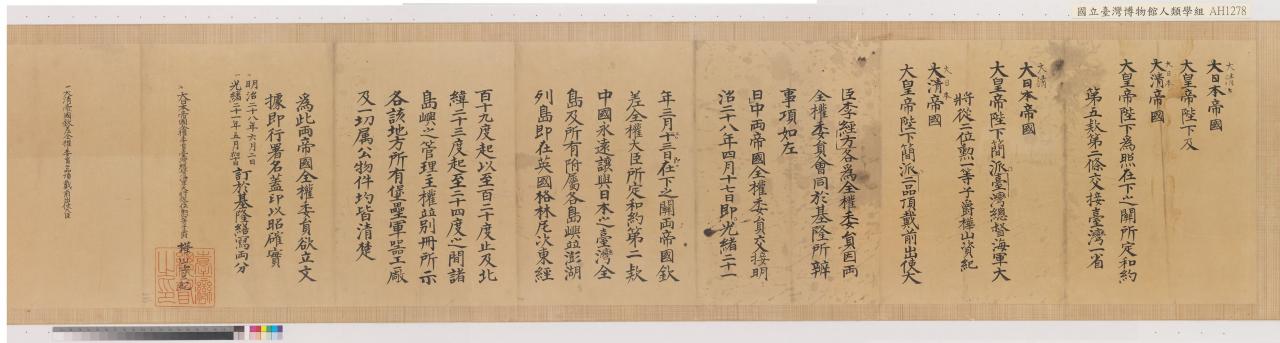 國立臺灣博物館人類學組 AH1278
大清
大日本帝國
大皇帝陛下及
大日本
大清帝國
大皇帝陛下為照在下之關所定和約
第五款第二條交接臺灣一省
大清
大日本帝國
大皇帝陛下簡派臺灣總督海軍大
將從二位勲一等子爵樺山資紀
大日本
大清帝國
大皇帝陛下簡派二品頂戴前出使大
臣李經方各為全權委員因兩
全權委員會同於基隆所辦
事項如左
日中兩帝國全權委員交接明
治二十八年四月十七日即光緒二十一
年三月二十三日在下之關兩帝國欽
差全權大臣所定和約第二款
中國永遠讓與日本之臺灣全
島及所有附屬各島嶼並澎湖
列島即在英國格林尼次東經
百十九度起以至百二十度止及北
緯二十三度起至二十四度之間諸
島嶼之管理主權並別冊所示
各該地方所有堡壘軍器工廠
及一切属公物件均皆清楚
為此兩帝國全權委員欲立文
據即行署名蓋印以昭確實
明治二十八年六月二日
光緒二十一年五月初十日訂於基隆繕寫兩分
大日本帝國全權委員臺灣總督海軍大將從二位勲一等子爵 樺山資紀
臺灣總督之印
大清帝國欽差全權委員二品頂戴前出使大臣